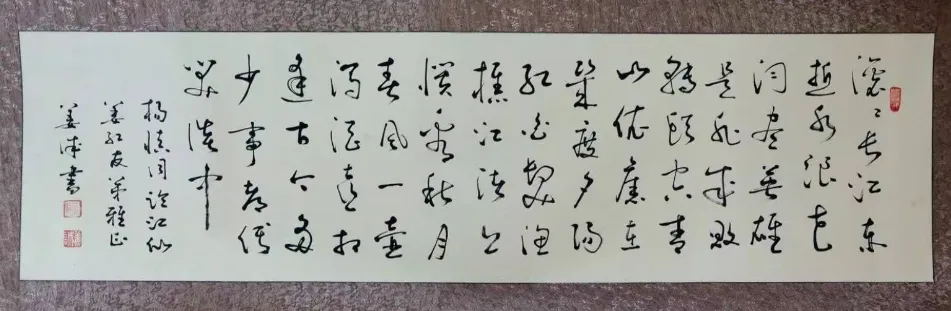 滚滚长江东
逝水浪花
淘尽英雄
是非成败
转头空青
山依旧在
几度夕阳
红白发渔
樵江渚上
惯看秋月
春风一壶
浊酒喜相
逢古今多
少事都付
笑谈中
杨慎词临江仙
红友弟雅正
姜书